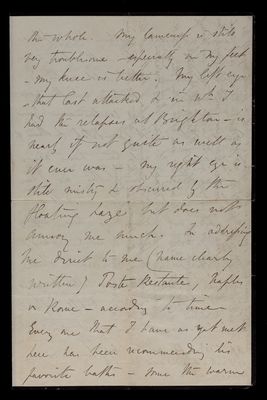 the whole. My lameness is still
very troublesome - especially in my feet
- my knee is better. My left eye
- that last attacked & in wh. I
had the relapses at Brighton - is
nearly if not quite as well as
it ever was - my right eye is
still misty & obscured by the
floating haze but does not
annoy me much. In addressing
me direct to me (name clearly
written) Poste Restante, Naples
or Rome - according to time
Every one that I have as yet met
here has been recommending his
favorite baths - some the warm